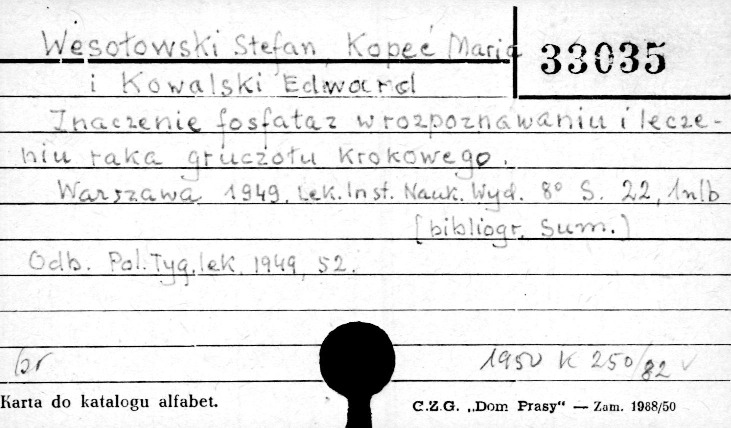 Wesołowski Stefan, Kopeć Maria
33035
i Kowalski Edward
Znaczenie fosfataz w rozpoznawaniu i lecze-
niu raka gruczołu krokowego.
Warszawa 1949. Lek. Inst. Nauk. Wyd. 8° S. 22, 1nlb
[bibliogr. Sum.]
Odb. Pol. Tyg. lek. 1949, 52.
br
1950 K 250/82
Karta do katalogu alfabet.
C.Z.G. „Dom Prasy“ — Zam. 1988/50